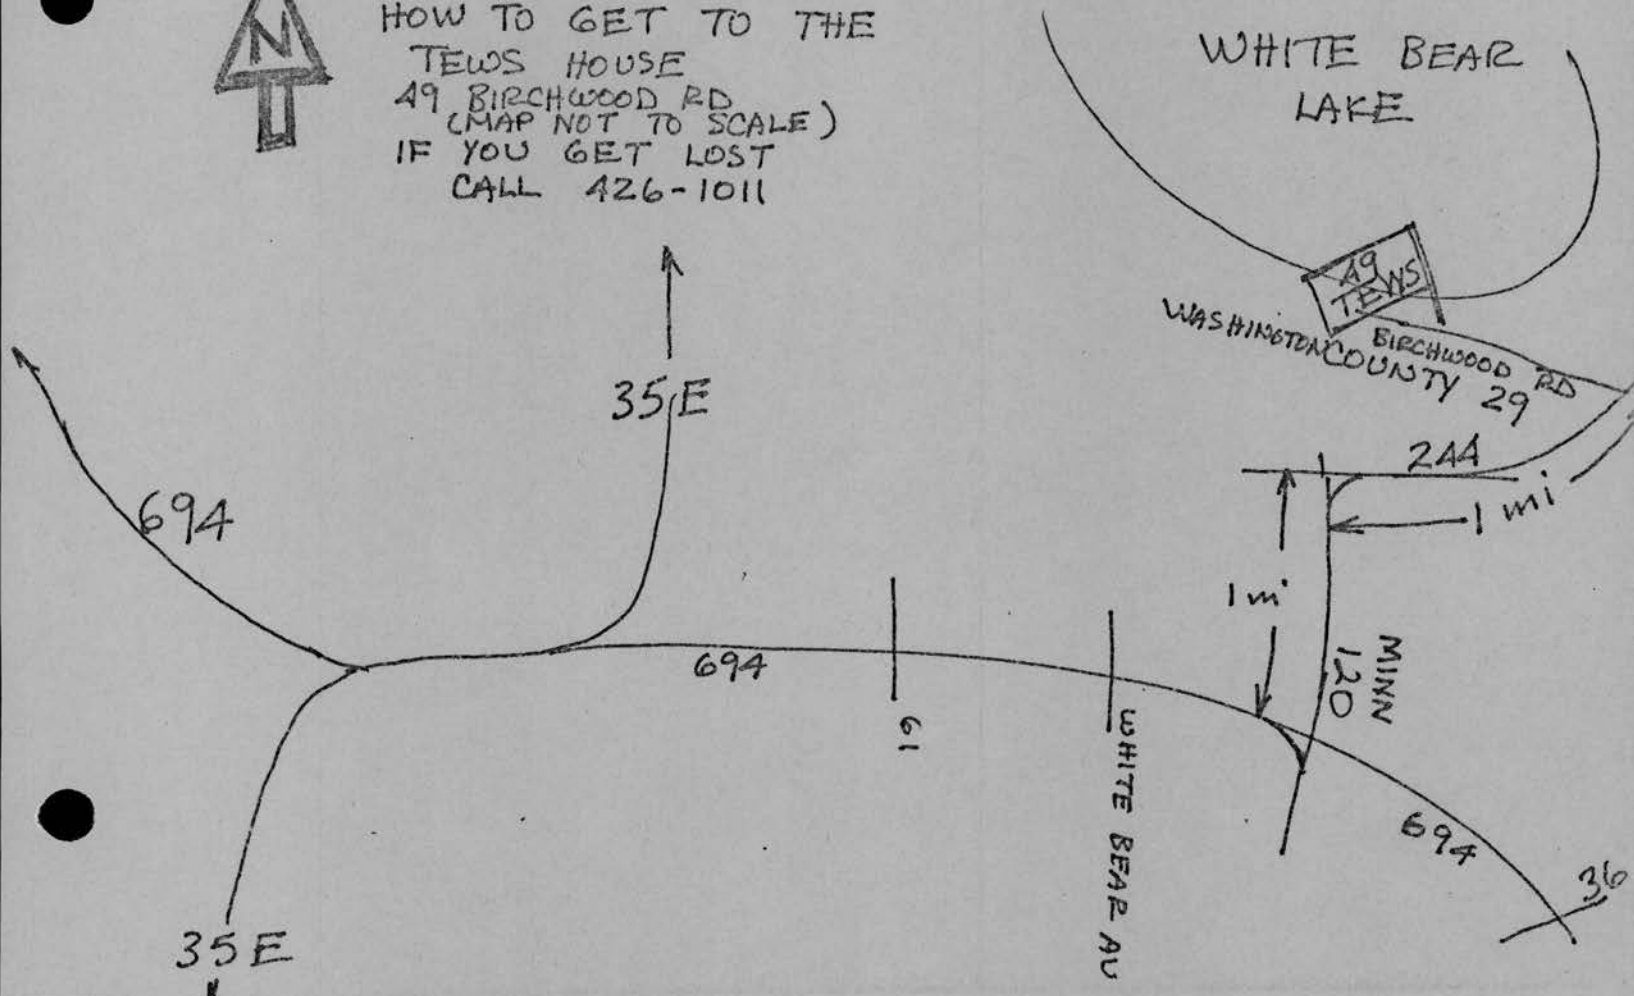 N
HOW TO GET TO THE
TEWS HOUSE
49 BIRCHWOOD RD
(MAP NOT TO SCALE)
IF YOU GET LOST
CALL 426-1011
WHITE BEAR
LAKE
49
TEWS
BIRCHWOOD RD
WASHINGTON COUNTY 29
35E
244
1 mi
694
1 mi
MINN
120
694
61
WHITE BEAR AV
694
36
35E